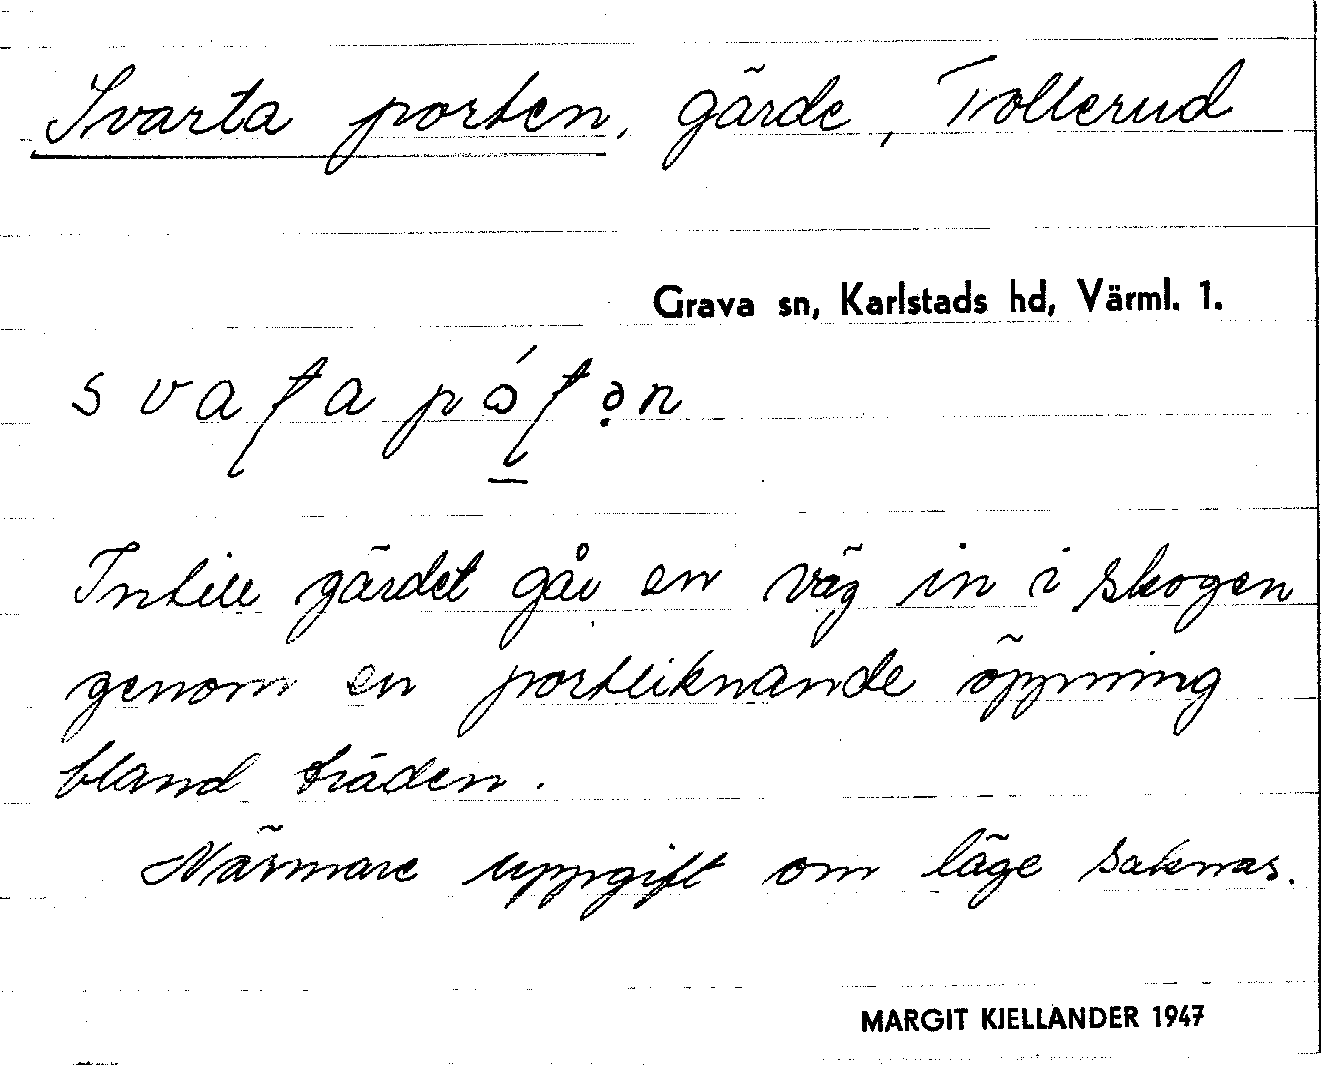 Svarta porten, gärde, Tollerud
Grava sn, Karlstads hd, Värml. 1.
Intill gärdet går en väg in i skogen
genom en portliknande öppning
bland träden.
Närmare uppgift om läge saknas.
MARGIT KJELLANDER 1947